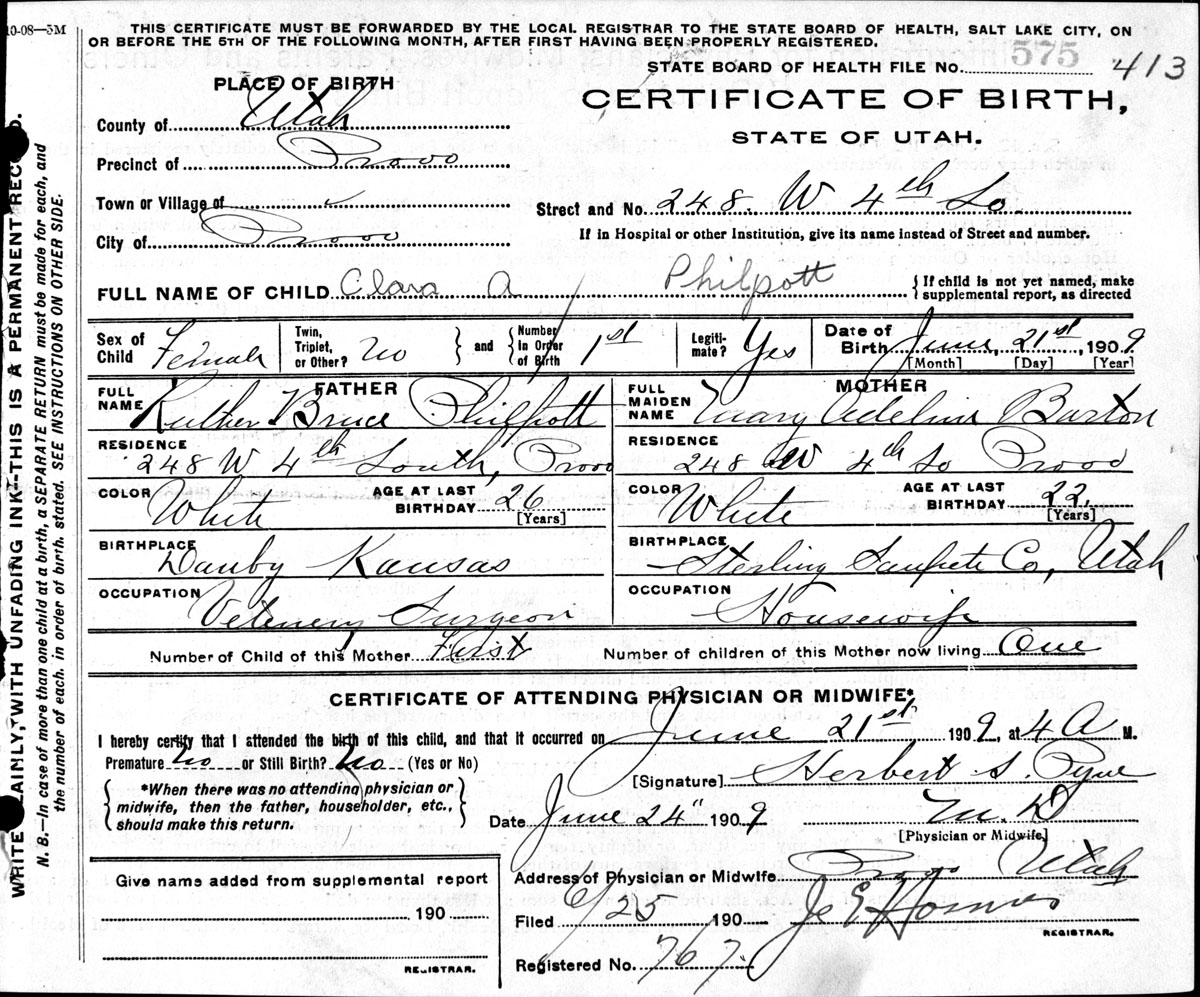 10-08—5M
THIS CERTIFICATE MUST BE FORWARDED BY THE LOCAL REGISTRAR TO THE STATE BOARD OF HEALTH, SALT LAKE CITY, ON
OR BEFORE THE 5TH OF THE FOLLOWING MONTH, AFTER FIRST HAVING BEEN PROPERLY REGISTERED.
STATE BOARD OF HEALTH FILE No. 575 413
PLACE OF BIRTH
CERTIFICATE OF BIRTH,
STATE OF UTAH.
County of Utah
Precinct of Provo
Town or Village of
Street and No. 248. W 4th So.
City of Provo
If in Hospital or other Institution, give its name instead of Street and number.
FULL NAME OF CHILD Clara A Philpott { If child is not yet named, make supplemental report, as directed
Sex of Child Female Twin, Triplet, or Other? no } and { Number In Order of Birth 1st Legiti- mate? Yes Date of Birth June, 21st, 1909
[Month] [Day] [Year]
FATHER
FULL NAME Bruce Philpott
MOTHER
FULL MAIDEN NAME Mary Adeline Barton
RESIDENCE 248 W 4th South, Provo
RESIDENCE 248 W 4th So Provo
COLOR White AGE AT LAST BIRTHDAY 26 [Years]
COLOR White AGE AT LAST BIRTHDAY 22, [Years]
BIRTHPLACE Danby Kansas
BIRTHPLACE Sterling Sanpete Co, Utah
OCCUPATION Vetenery Surgeon
OCCUPATION Housewife
Number of Child of this Mother First Number of children of this Mother now living One
CERTIFICATE OF ATTENDING PHYSICIAN OR MIDWIFE*
I hereby certify that I attended the birth of this child, and that it occurred on June 21st 1909, at 4 A M.
Premature no or Still Birth? No (Yes or No)
[Signature] Herbert S. Pyne
{ *When there was no attending physician or midwife, then the father, householder, etc., should make this return. }
Date June 24" 1909 M.D
[Physician or Midwife]
Give name added from supplemental report
190
REGISTRAR.
Address of Physician or Midwife Provo Utah
Filed 6/25 190
REGISTRAR.
Registered No. 767.
WRITE PLAINLY, WITH UNFADING INK—THIS IS A PERMANENT RECORD.
N. B.—In case of more than one child at a birth, a SEPARATE RETURN must be made for each, and
the number of each, in order of birth, stated. SEE INSTRUCTIONS ON OTHER SIDE.